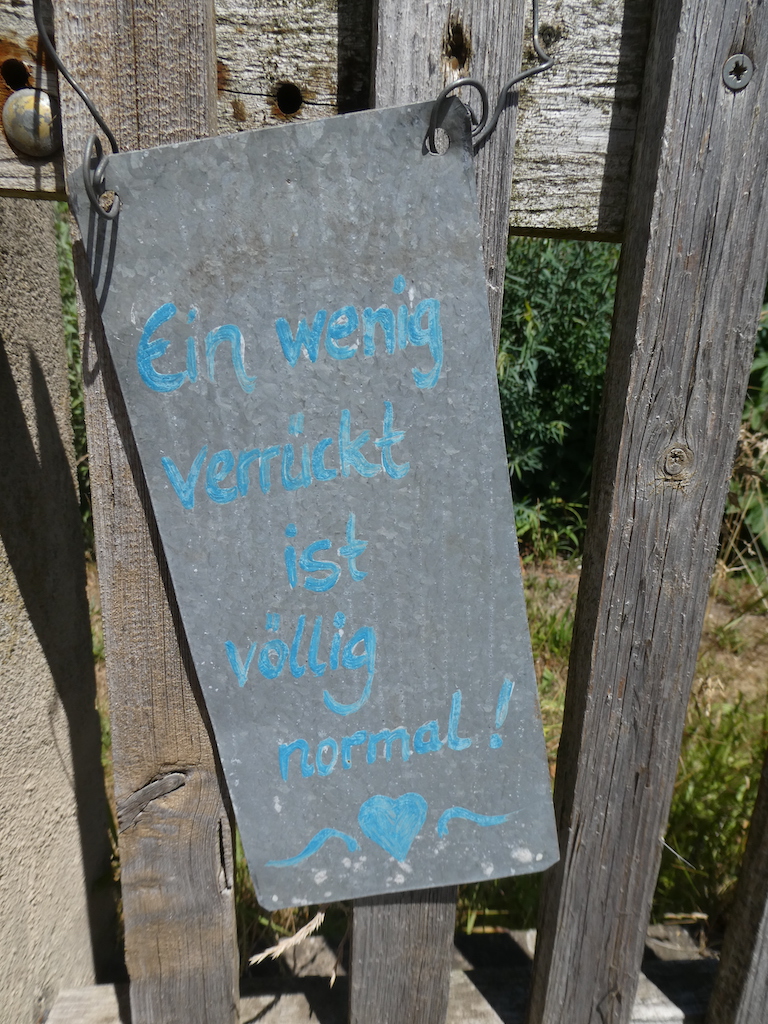 Ein wenig
verrückt
ist
völlig
normal!